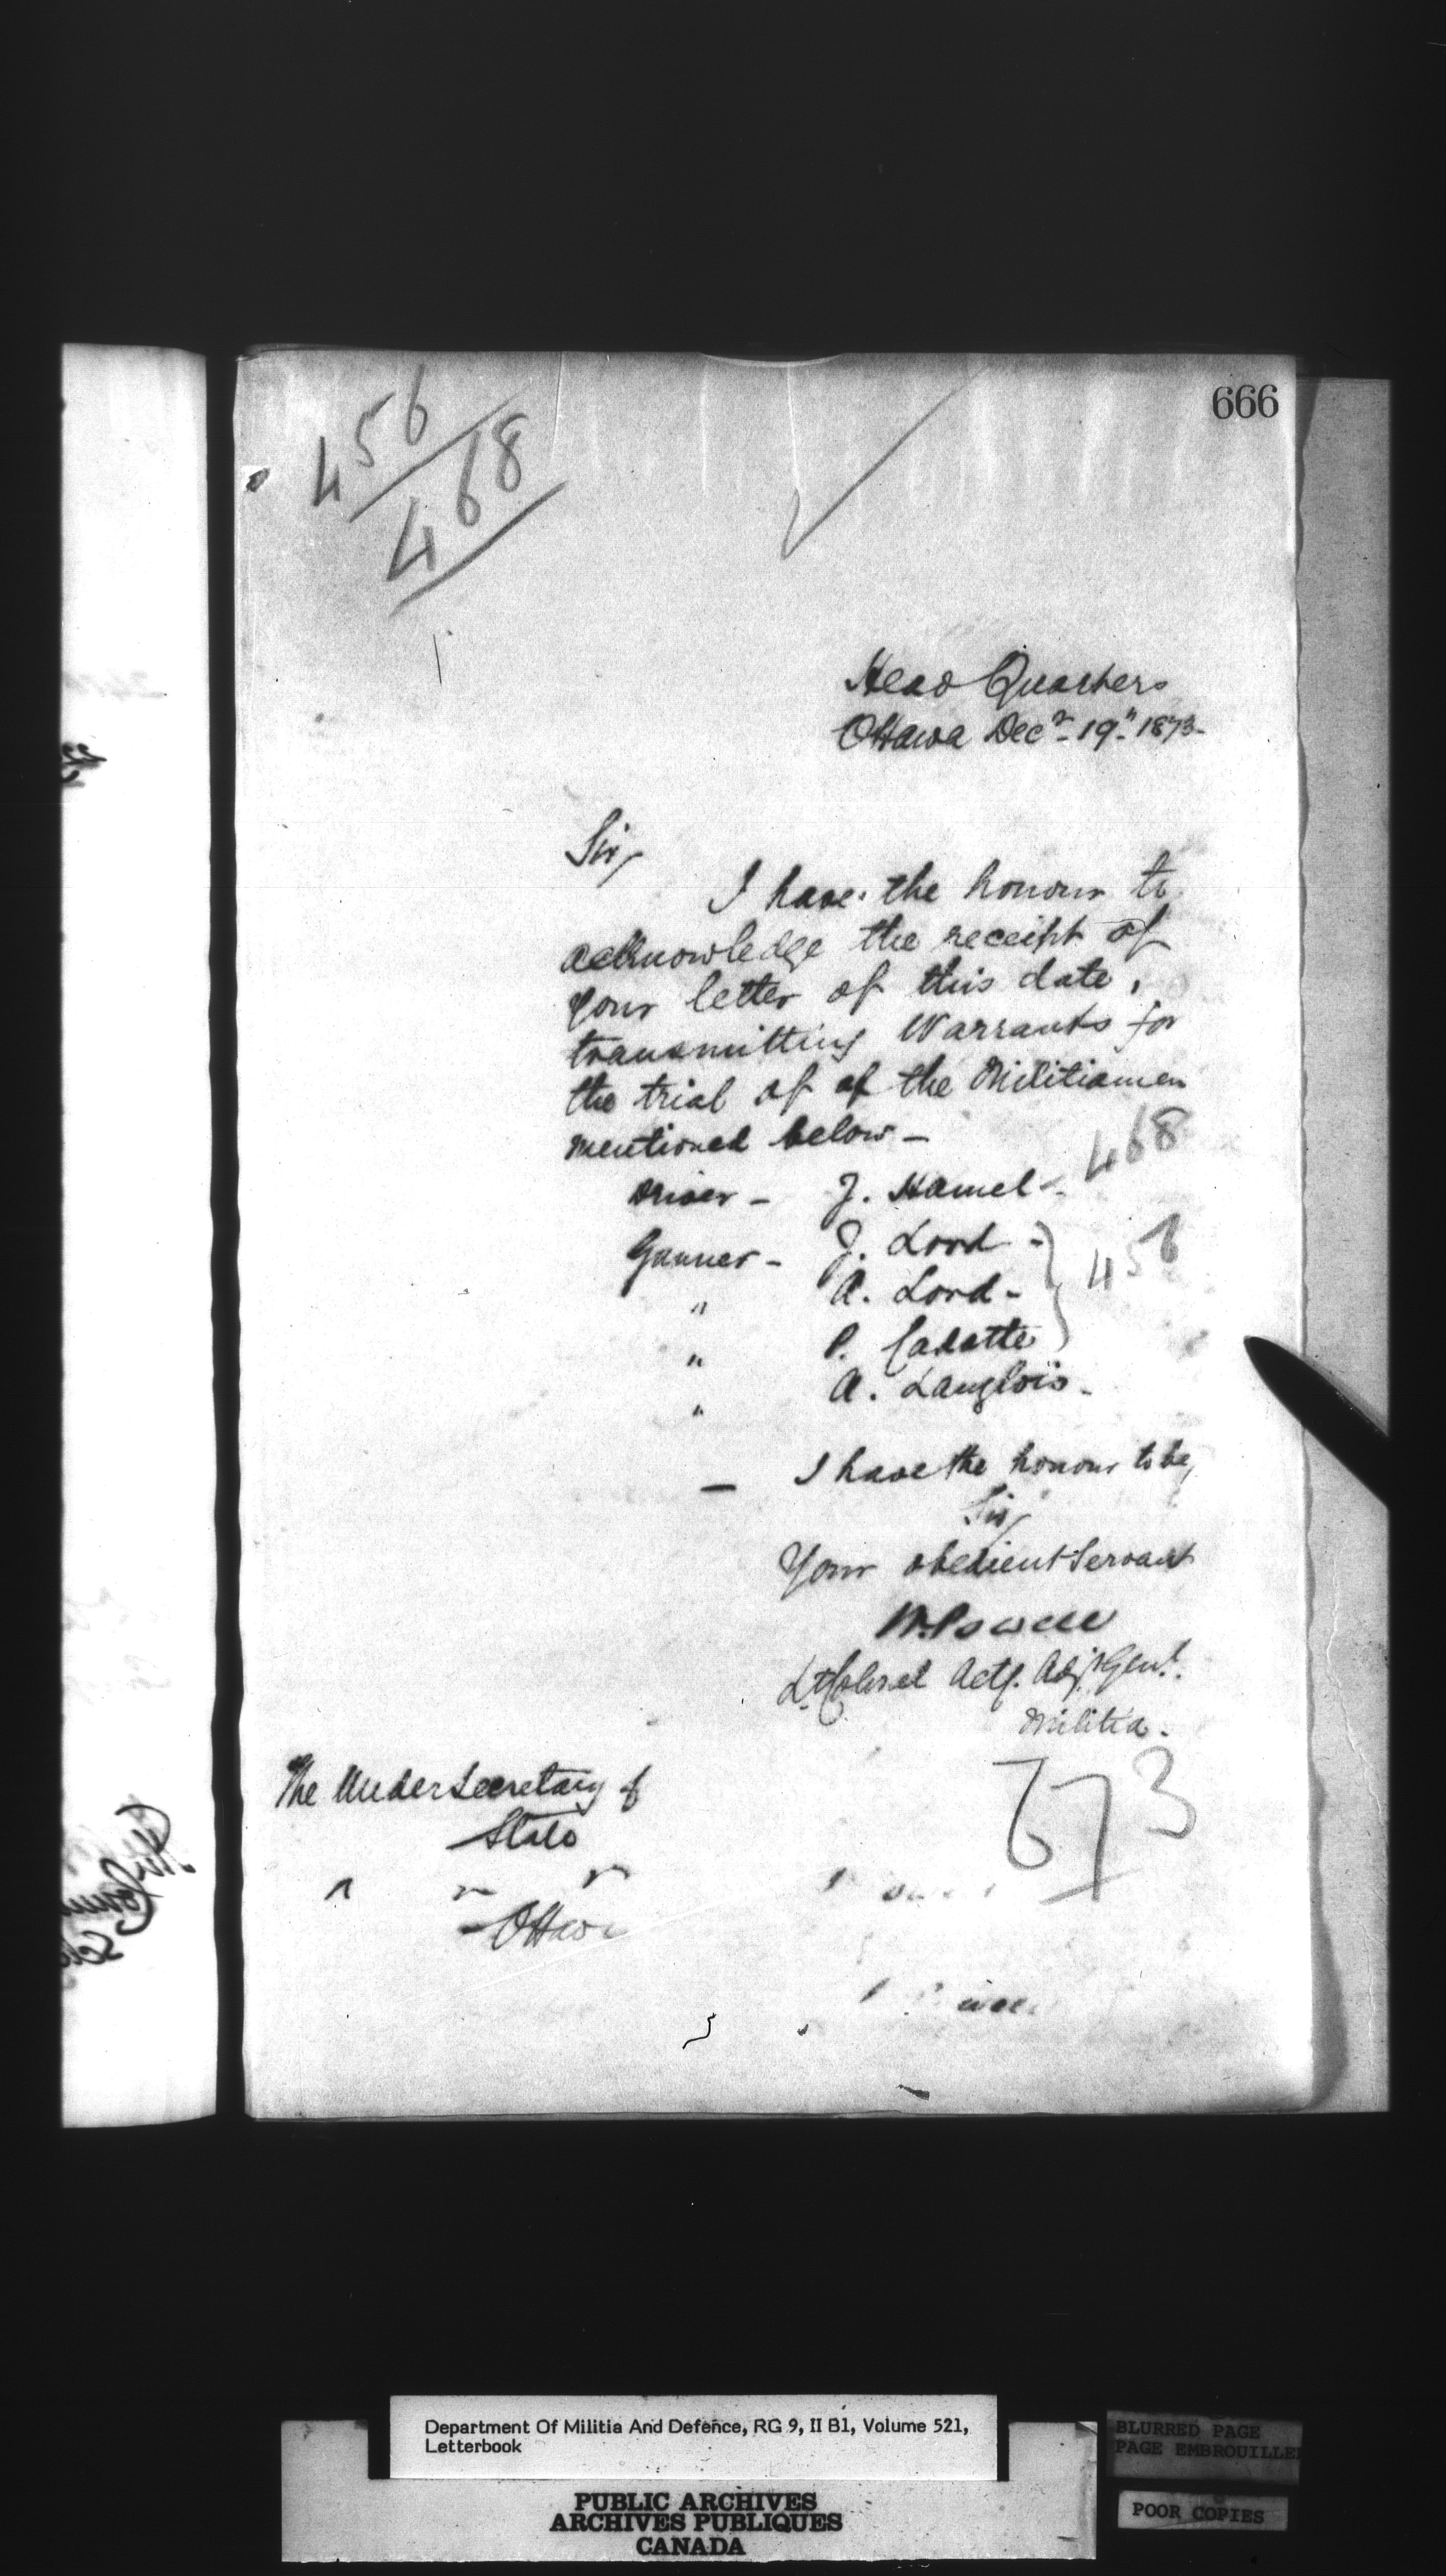 666
456
468
Head Quarters
Ottawa Decr. 19th 1873-
Sir,
I have the honour to
acknowledge the receipt of
your letter of this date,
transmitting Warrants for
the trial of of the Militiamen
mentioned below -
Driver - J. Hamel - 468
Gunner - J. Lord -
" A. Lord - 456
" P. Cadotte
" A. Langlois -
I have the honour to be,
Sir,
Your obedient Servant
W. Powell
Lt Colonel Actg. Adjt Genl.
Militia.
The Under Secretary of
State
" " "
- Ottawa
673
Department Of Militia And Defence, RG 9, II B1, Volume 521,
Letterbook
BLURRED PAGE
PAGE EMBROUILLE
PUBLIC ARCHIVES
ARCHIVES PUBLIQUES
CANADA
POOR COPIES